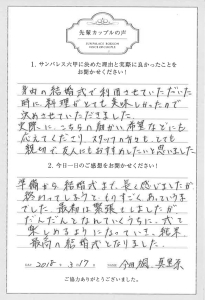 先輩カップルの声
1. サンパレス六甲に決めた理由と実際に良かったことを
お聞かせください!
身内の結婚式で利用させていただいた
時に料理がとても美味しかったので
決めさせていただきました。
実際に こちらの細かい希望などにも
応えてくださり スタッフの方も とても
親切で 友人にもおすすめしたいと思いました
2. 今日一日のご感想をお聞かせください!
準備から 結婚式まで 長く感じましたが
終わってしまうと ものすごくあっという間
でした。最初は緊張もしましたが
だんだんとなれていくうちに、式も
楽しめるようになっていき、結果
最高の結婚式となりました。
2018. 3. 17
ご協力ありがとうございました。